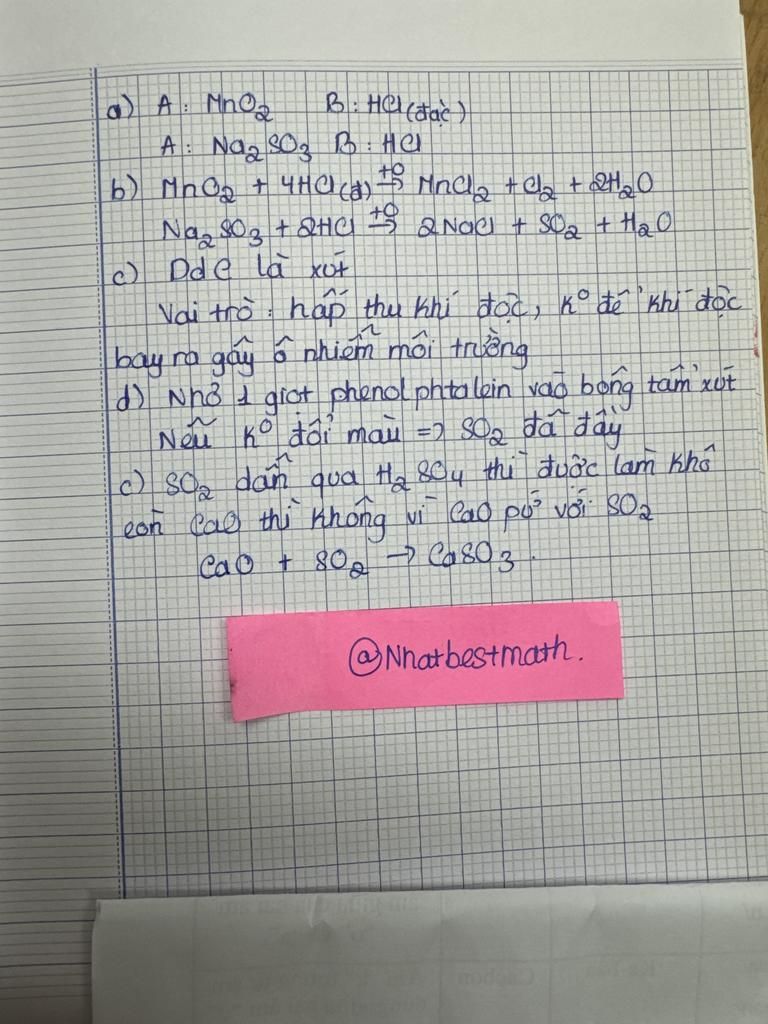 a) A : MnO2 B : HCl (đặc)
A : Na2SO3 B : HCl
b) MnO2 + 4HCl(đ) +O→ MnCl2 + Cl2 + 2H2O
Na2SO3 + 2HCl +O→ 2NaCl + SO2 + H2O
c) Dd C là xút
Vai trò : hấp thu khí độc, Ko để khí độc
bay ra gây ô nhiễm môi trường
d) Nhỏ 1 giọt phenolphtalein vào bông tẩm xút
Nếu Ko đổi màu => SO2 đã đầy
c) SO2 dẫn qua H2SO4 thì được làm khô
còn CaO thì không vì CaO pứ với SO2
CaO + SO2 → CaSO3.
@Nhatbestmath.